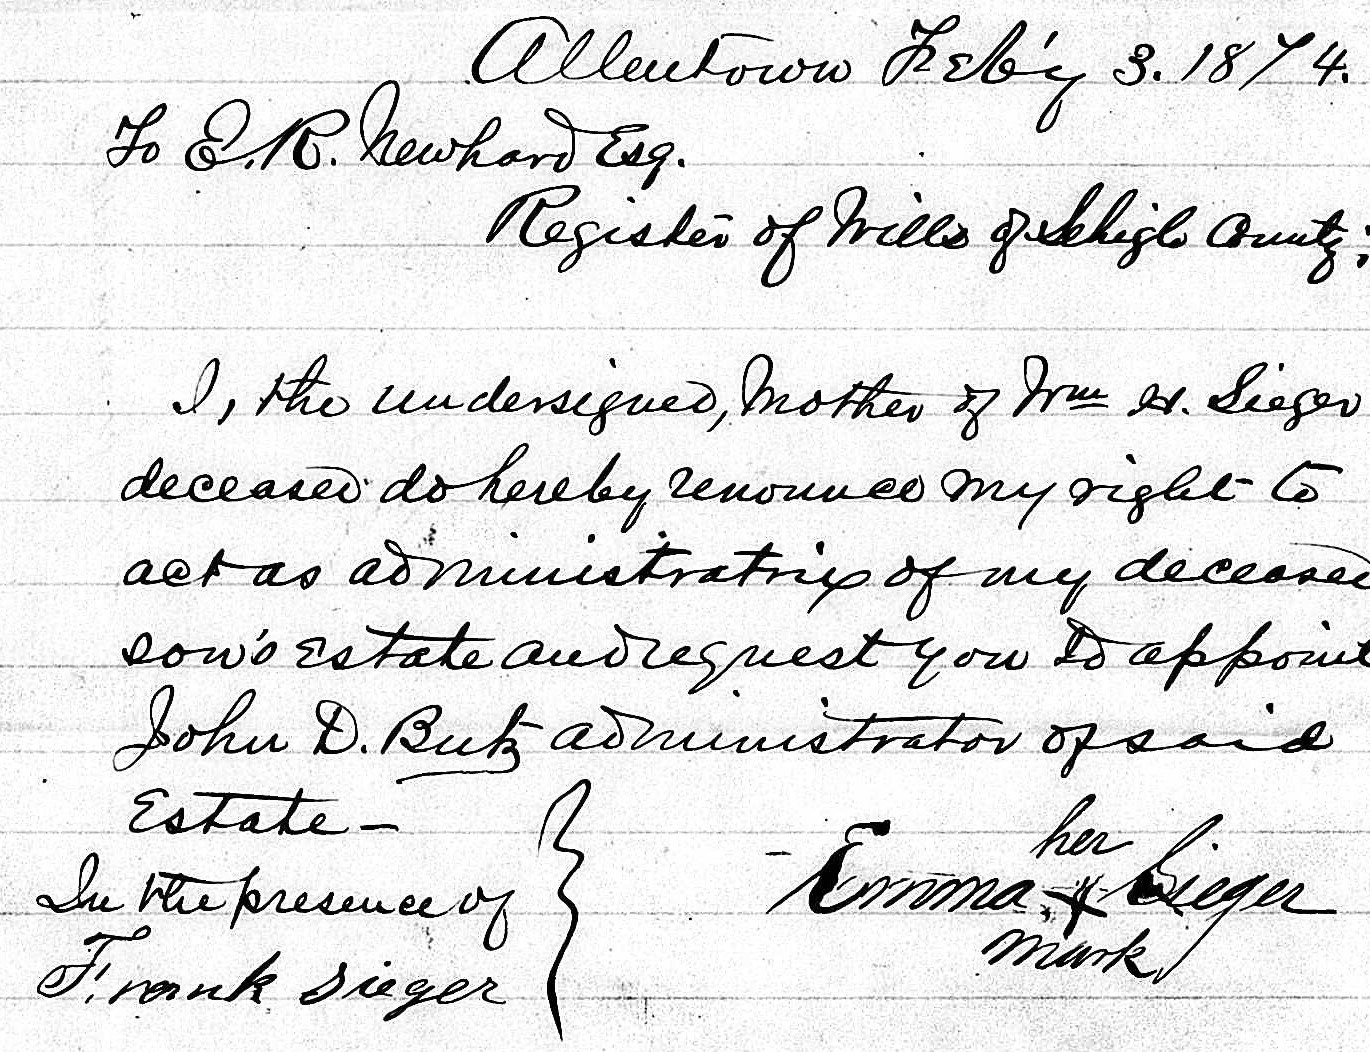 Allentown Feb'y 3. 1874.
To E. R. Newhard Esq.
Register of Wills of Lehigh County:
I, the undersigned, Mother of Wm H. Sieger
deceased do hereby renounce my right to
act as administratrix of my deceased
son's Estate and request you to appoint
John D. Butz administrator of said
Estate —
In the presence of
Frank Sieger
her
Emma X Sieger
mark